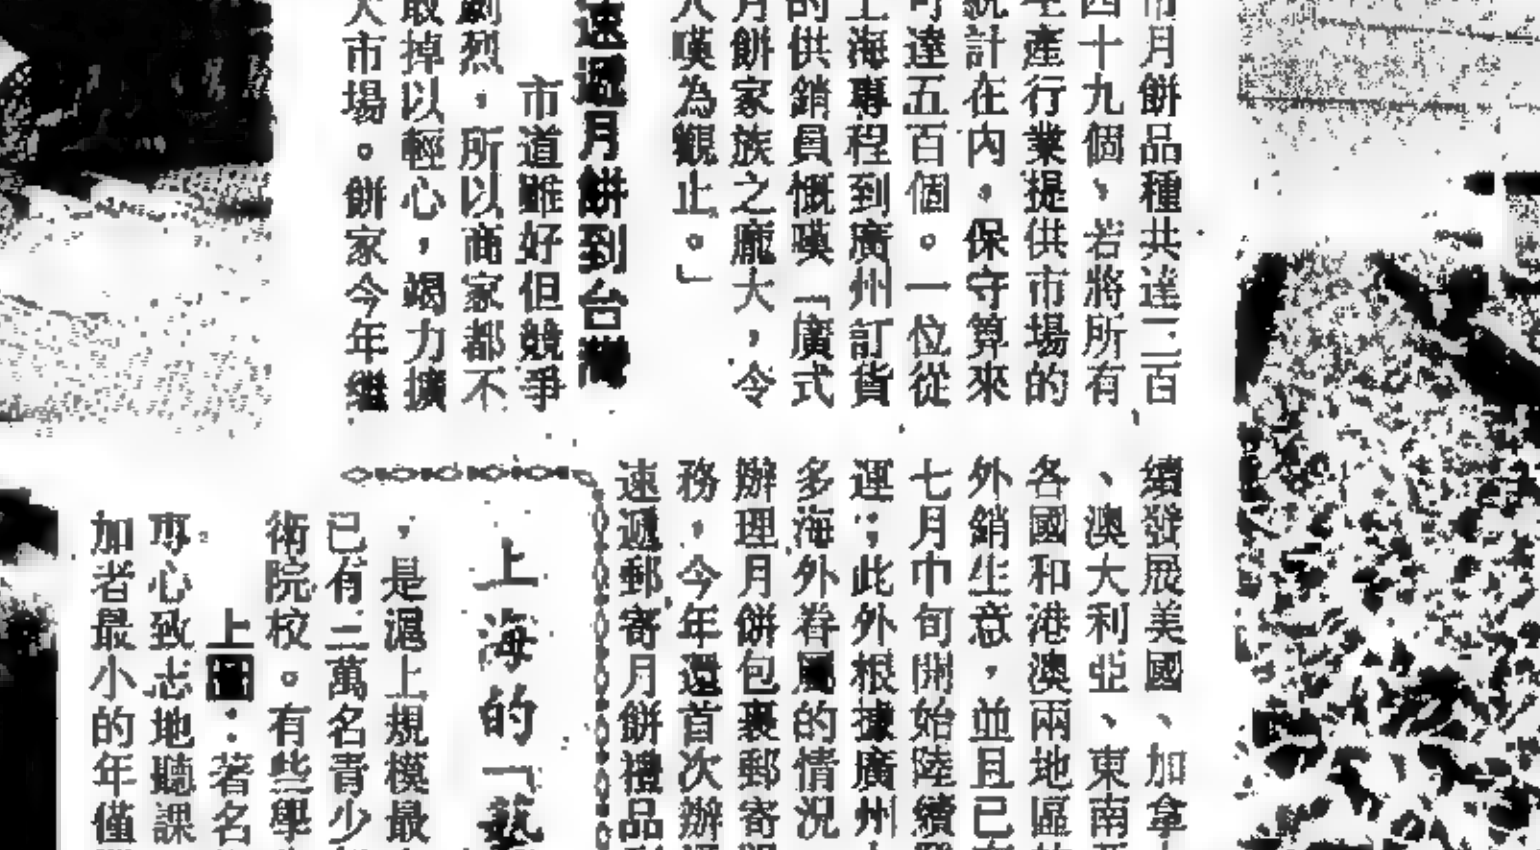 市月餅品種共達三百
四十九個，若將所有
生產行業提供市場的
統計在內，保守算來
可達五百個。一位從
上海專程到廣州訂貨
的供銷員慨嘆「廣式
月餅家族之龐大，令
人嘆為觀止。」
速遞月餅到台灣
市道雖好但競爭
劇烈，所以商家都不
敢掉以輕心，竭力擴
大市場。餅家今年繼
續發展美國、加拿
、澳大利亞、東南
各國和港澳兩地區
外銷生意，並且已
七月中旬開始陸續
運；此外根據廣州
多海外眷屬的情況
辦理月餅包裹郵寄
務，今年還首次辦
速遞郵寄月餅禮品
上海的「藝
，是滬上規模最
已有三萬名青少
術院校。有些學
上圖：著名
專心致志地聽課
加者最小的年僅